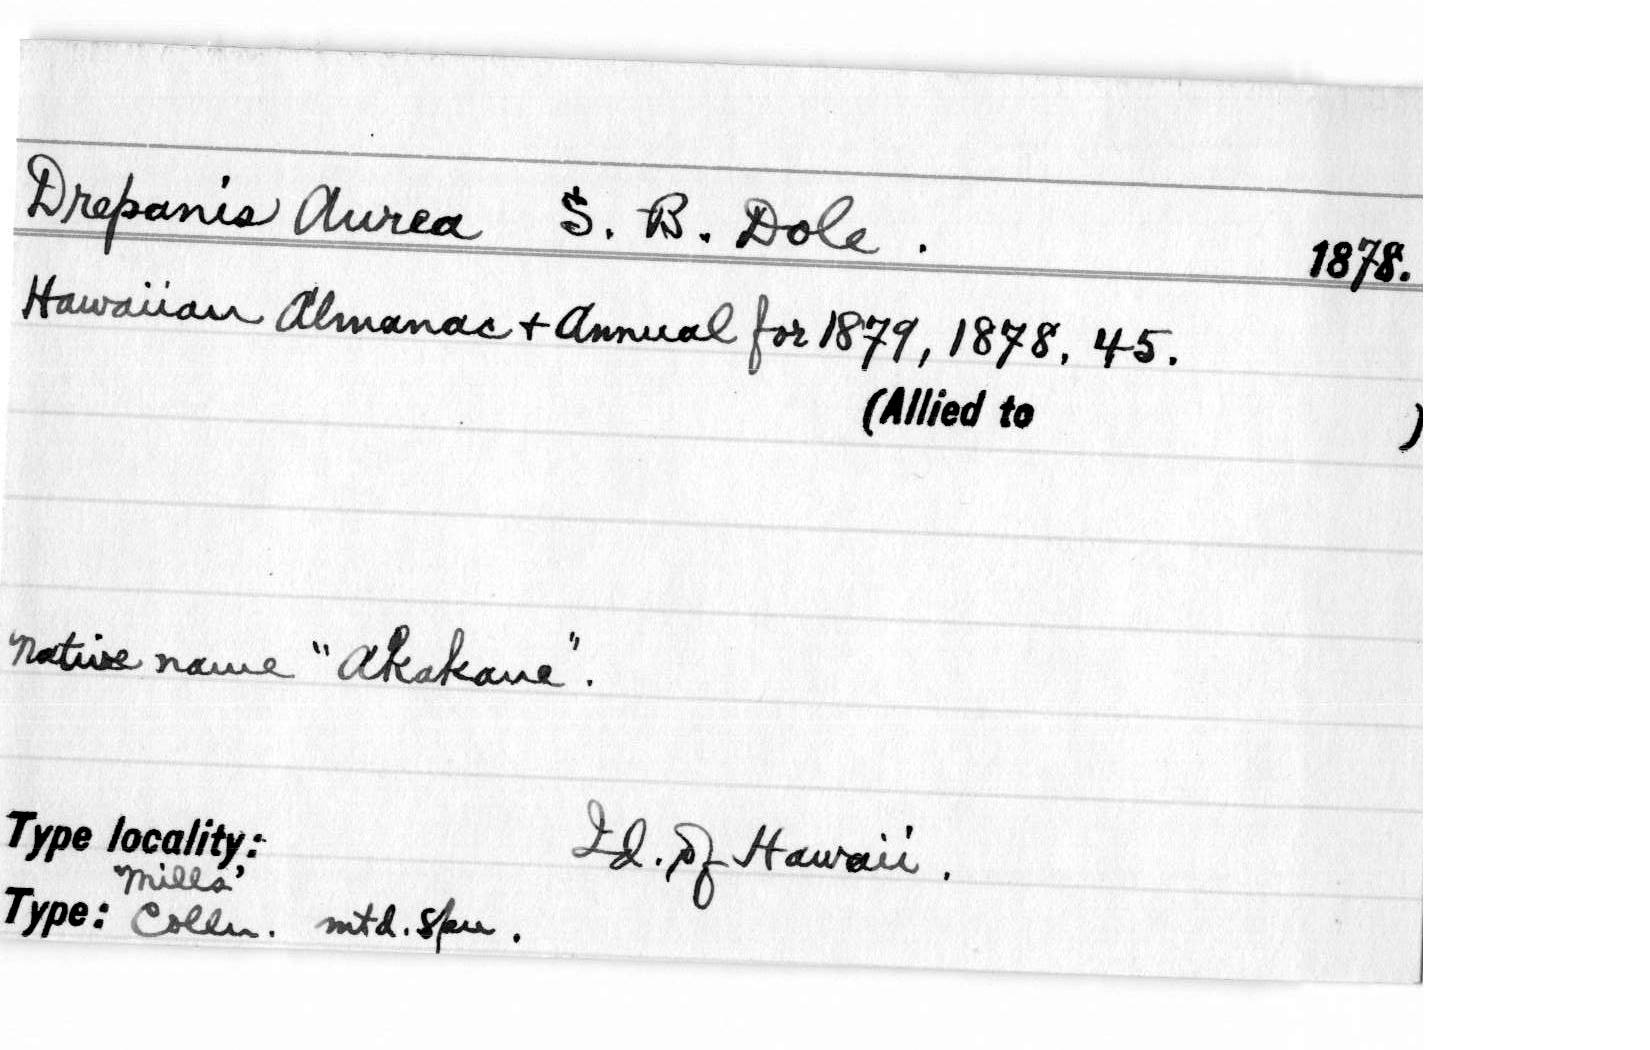 Drepanis Aurea S. B. Dole . 1878.
Hawaiian Almanac + Annual for 1879, 1878. 45.
(Allied to )
Native name "Akakane".
Type locality: Id. of Hawaii .
"Mills'
Type: Colln. mtd. Spec .